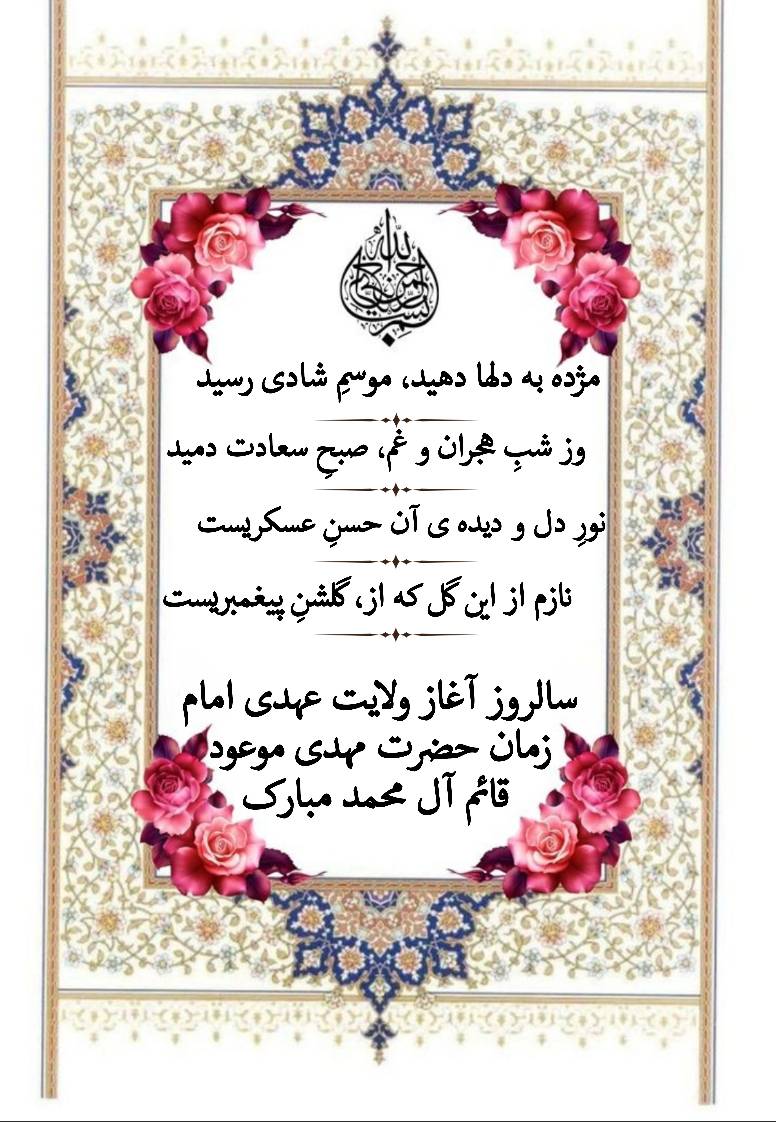 بسم الله الرحمن الرحیم
مژده به دلها دهید، موسمِ شادی رسید
وز شبِ هجران و غم، صبحِ سعادت دمید
نورِ دل و دیده ی آن حسنِ عسکریست
نازم از این گل که از، گلشنِ پیغمبریست
سالروز آغاز ولایت عهدی امام
زمان حضرت مهدی موعود
قائم آل محمد مبارک